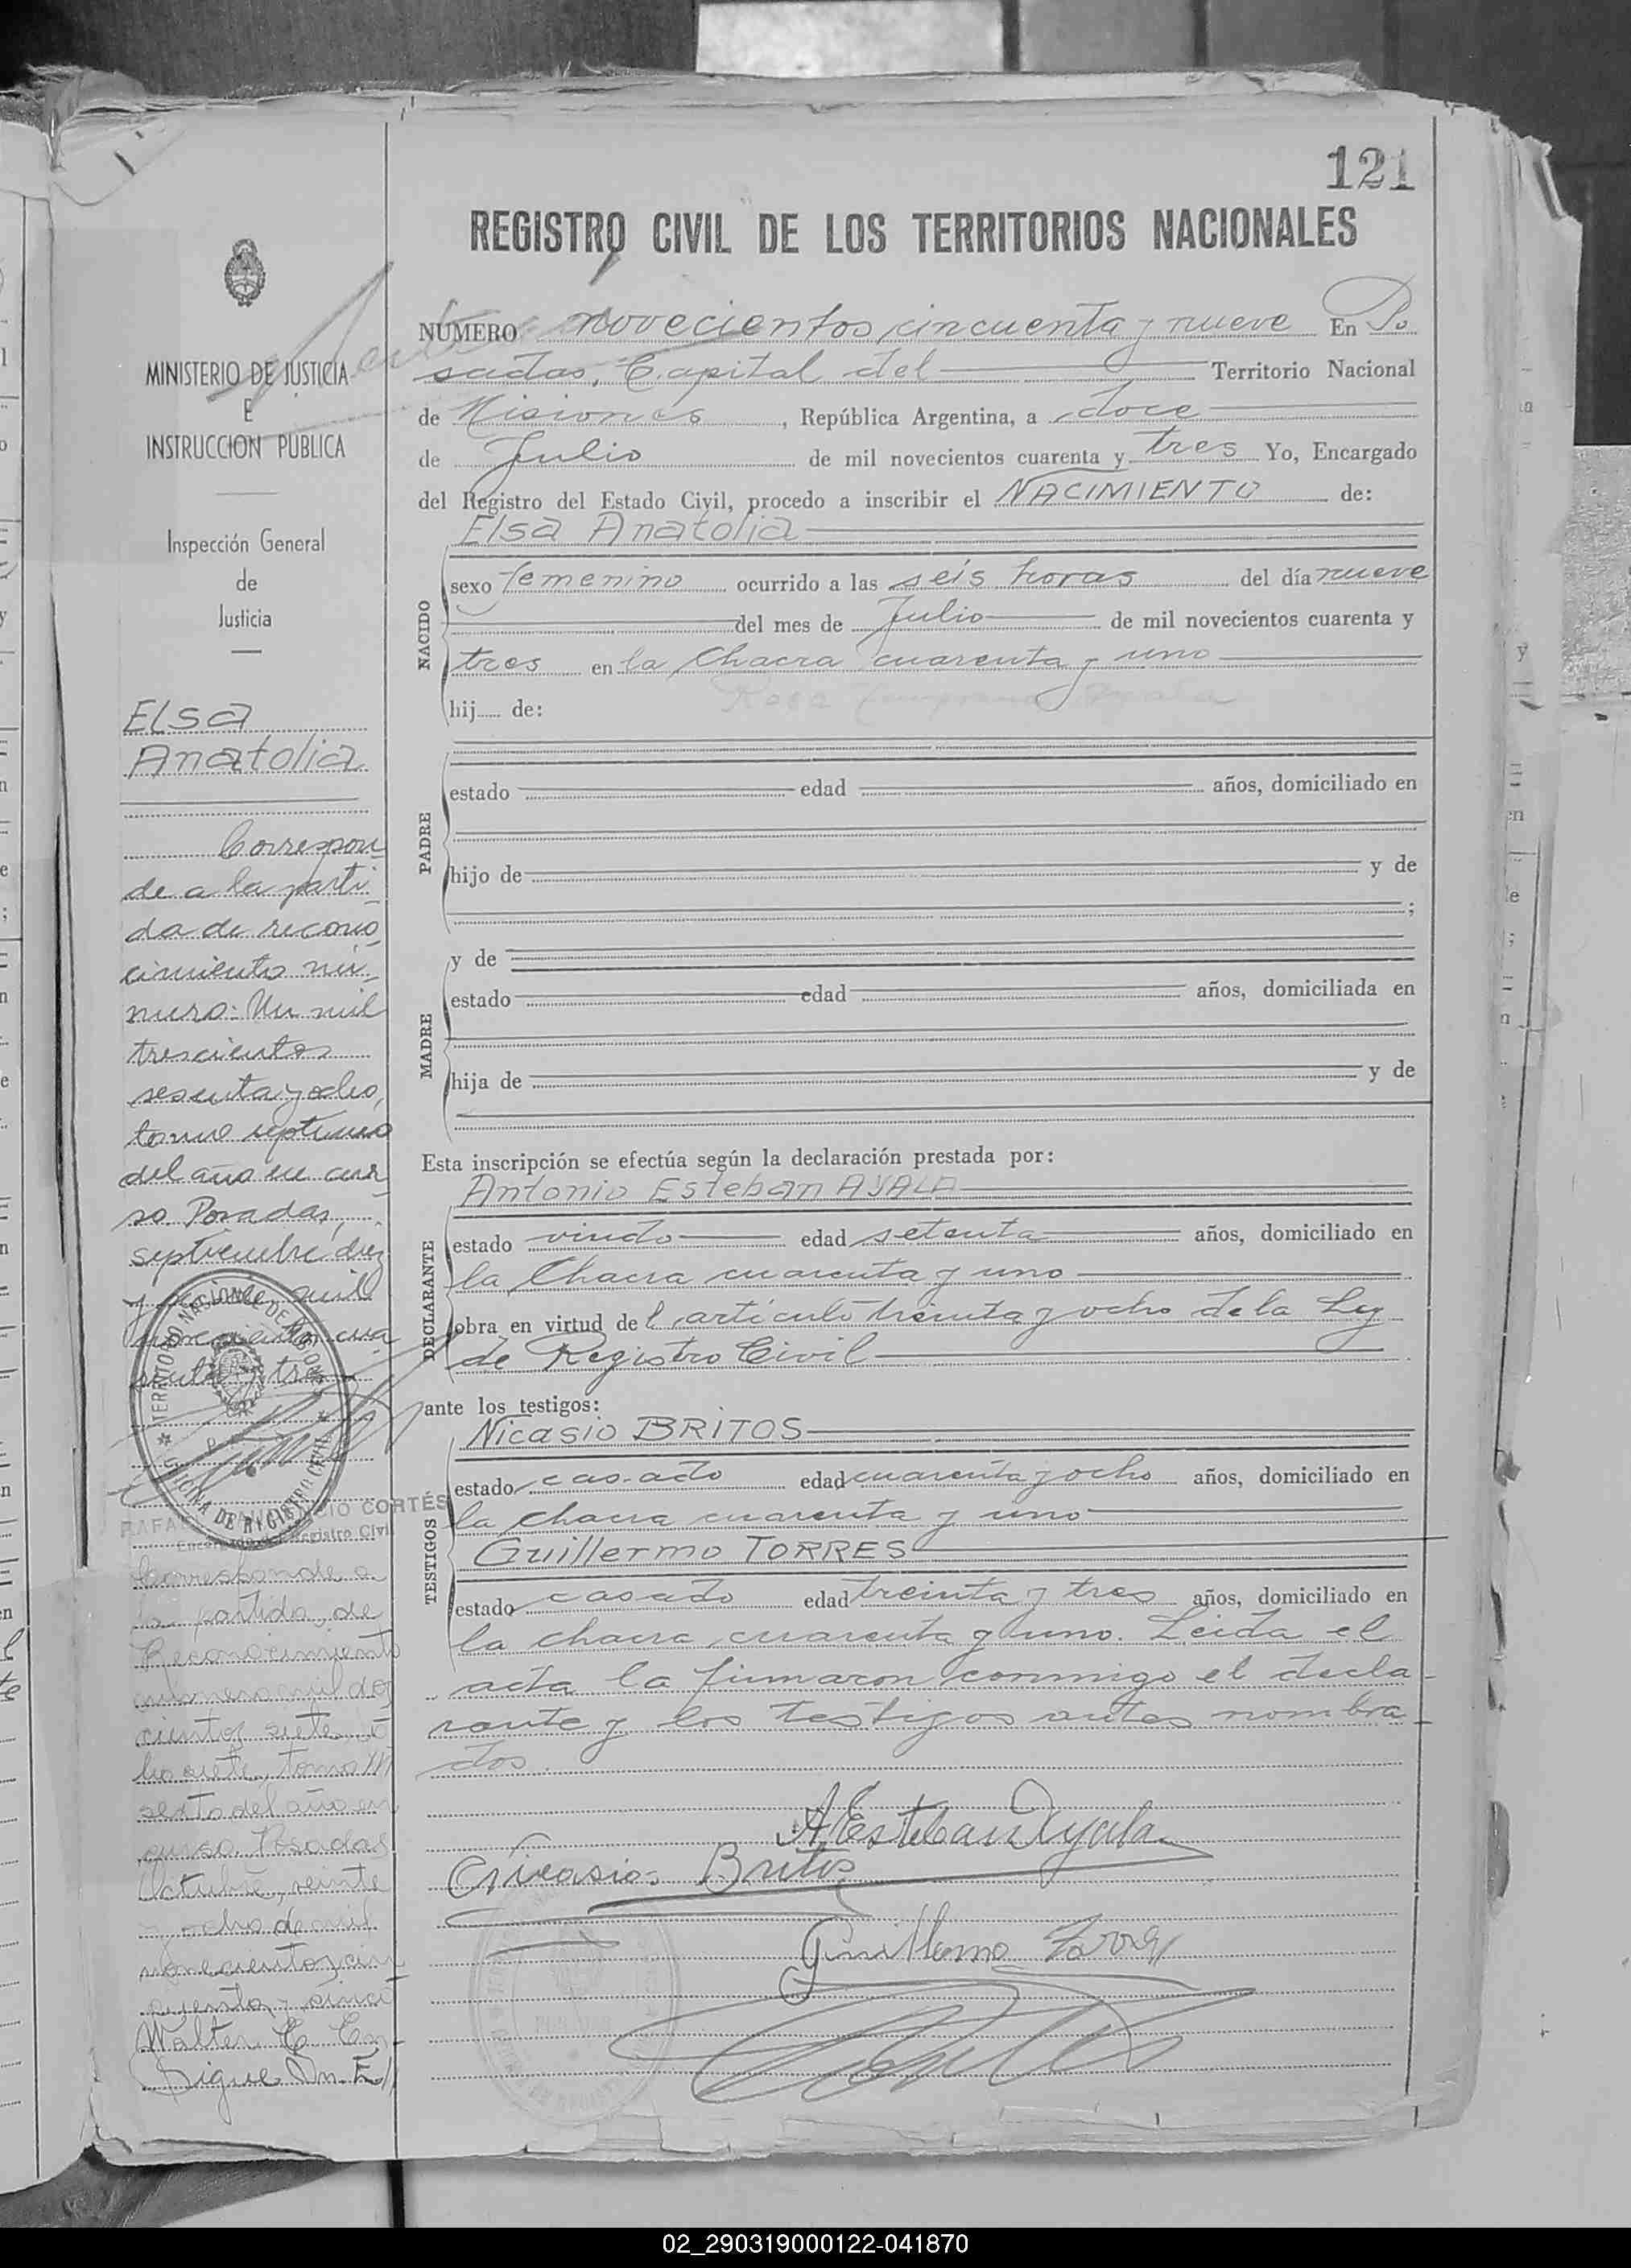 121
REGISTRO CIVIL DE LOS TERRITORIOS NACIONALES
MINISTERIO DE JUSTICIA
E
INSTRUCCION PUBLICA
Inspección General
de
Justicia
Elsa
Anatolia
Correspon
de a la parti
da de recono
cimiento nú
mero: Un mil
trescientos
sesenta y ocho,
tomo septimo
del año en cur
so. Posadas,
septiembre diez
y nueve mil
novecientos cua
renta y tres
TERRITORIO NACIONAL DE MISIONES
OFICINA DE REGISTRO CIVIL
CORTÉS
Encargado del Registro Civil
Corresponde a
la partida de
Reconocimiento
número mil dos
cientos siete
tomo
sexto del año en
curso. Posadas
Octubre, veinte
y ocho de mil
novecientos cin
cuenta y cinco
Walter
Sigue
NUMERO novecientos cincuenta y nueve En Po
sadas, Capital del Territorio Nacional
de Misiones, República Argentina, a doce
de Julio de mil novecientos cuarenta y tres Yo, Encargado
del Registro del Estado Civil, procedo a inscribir el NACIMIENTO de:
NACIDO
Elsa Anatolia
sexo femenino ocurrido a las seis horas del día nueve
del mes de Julio de mil novecientos cuarenta y
tres en la Chacra cuarenta y uno
hij de:
PADRE
estado edad años, domiciliado en
hijo de y de
;
MADRE
y de
estado edad años, domiciliada en
hija de y de
Esta inscripción se efectúa según la declaración prestada por:
DECLARANTE
Antonio Esteban AYALA
estado viudo edad setenta años, domiciliado en
la Chacra cuarenta y uno
obra en virtud del artículo treinta y ocho de la Ley
de Registro Civil
ante los testigos:
TESTIGOS
Nicasio BRITOS
estado casado edad cuarenta y ocho años, domiciliado en
la chacra cuarenta y uno
Guillermo TORRES
estado casado edad treinta y tres años, domiciliado en
la chacra cuarenta y uno. Leida el
acta la firmaron conmigo el decla-
rante y los testigos antes nombra-
dos.
A Esteban Ayala
Nicasio Britos
Guillermo Torres
02_290319000122-041870